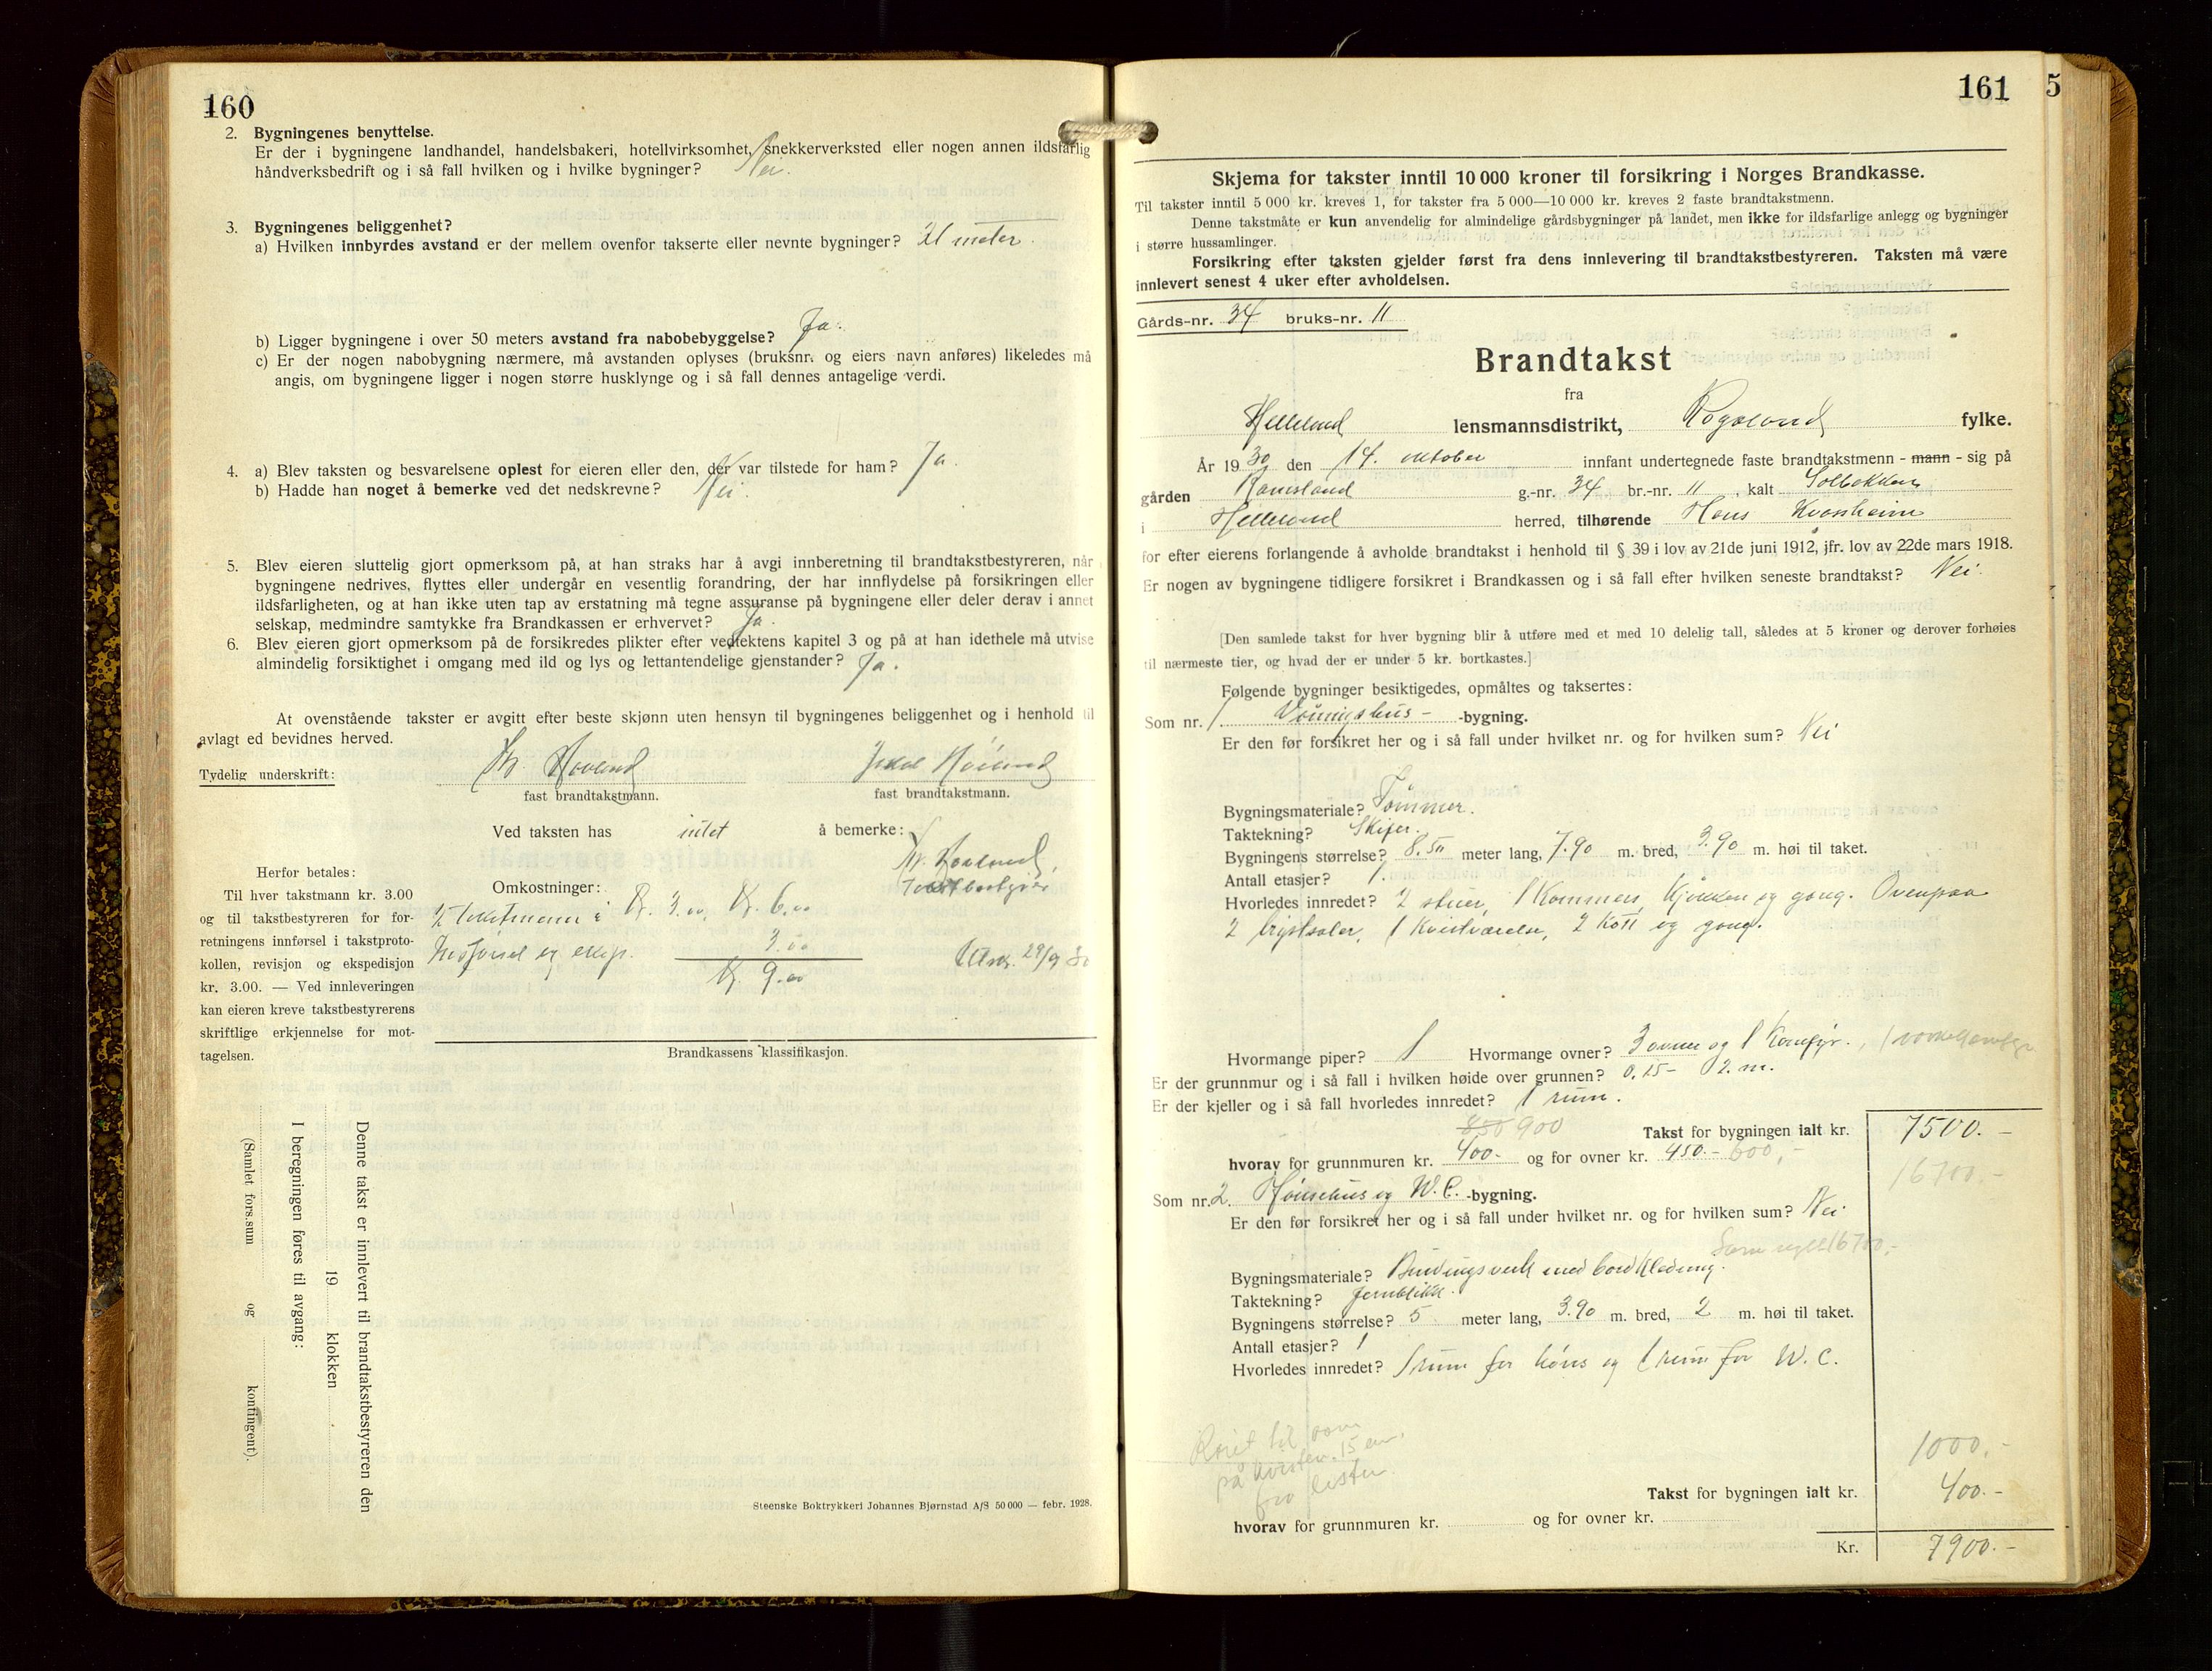 160
2. Bygningenes benyttelse.
Er der i bygningene landhandel, handelsbakeri, hotellvirksomhet, snekkerverksted eller nogen annen ildsfarlig
håndverksbedrift og i så fall hvilken og i hvilke bygninger? Nei.
3. Bygningenes beliggenhet?
a) Hvilken innbyrdes avstand er der mellem ovenfor takserte eller nevnte bygninger? 21 meter.
b) Ligger bygningene i over 50 meters avstand fra nabobebyggelse? Ja.
c) Er der nogen nabobygning nærmere, må avstanden oplyses (bruksnr. og eiers navn anføres) likeledes må
angis, om bygningene ligger i nogen større husklynge og i så fall dennes antagelige verdi.
4. a) Blev taksten og besvarelsene oplest for eieren eller den, der var tilstede for ham? Ja.
b) Hadde han noget å bemerke ved det nedskrevne? Nei.
5. Blev eieren sluttelig gjort opmerksom på, at han straks har å avgi innberetning til brandtakstbestyreren, når
bygningene nedrives, flyttes eller undergår en vesentlig forandring, der har innflydelse på forsikringen eller
ildsfarligheten, og at han ikke uten tap av erstatning må tegne assuranse på bygningene eller deler derav i annet
selskap, medmindre samtykke fra Brandkassen er erhvervet? Ja.
6. Blev eieren gjort opmerksom på de forsikredes plikter efter vedtektens kapitel 3 og på at han idethele må utvise
almindelig forsiktighet i omgang med ild og lys og lettantendelige gjenstander? Ja.
At ovenstående takster er avgitt efter beste skjønn uten hensyn til bygningenes beliggenhet og i henhold til
avlagt ed bevidnes herved.
Tydelig underskrift: Hovland
fast brandtakstmann. fast brandtakstmann.
Ved taksten has intet å bemerke:
Hovland
Omkostninger:
2 takstmenn á Kr. 3.00, Kr. 6.00
Innførsel og eksp. 3.00
Kr. 9.00
29/9 30
Herfor betales:
Til hver takstmann kr. 3.00
og til takstbestyreren for for-
retningens innførsel i takstproto-
kollen, revisjon og ekspedisjon
kr. 3.00. — Ved innleveringen
kan eieren kreve takstbestyrerens
skriftlige erkjennelse for mot-
tagelsen.
Brandkassens klassifikasjon.
Denne takst er innlevert til brandtakstbestyreren den
19 klokken
I beregningen føres til avgang:
(Samlet fors.sum og kontingent).
Steenske Boktrykkeri Johannes Bjørnstad A/S 50 000 — febr. 1928.
161 5
Skjema for takster inntil 10 000 kroner til forsikring i Norges Brandkasse.
Til takster inntil 5 000 kr. kreves 1, for takster fra 5 000—10 000 kr. kreves 2 faste brandtakstmenn.
Denne takstmåte er kun anvendelig for almindelige gårdsbygninger på landet, men ikke for ildsfarlige anlegg og bygninger
i større hussamlinger.
Forsikring efter taksten gjelder først fra dens innlevering til brandtakstbestyreren. Taksten må være
innlevert senest 4 uker efter avholdelsen.
Gårds-nr. 34 bruks-nr. 11
Brandtakst
fra
Helleland lensmannsdistrikt, Rogaland fylke.
År 1930 den 14. oktober innfant undertegnede faste brandtakstmenn - mann - sig på
gården Ramsland g.-nr. 34 br.-nr. 11, kalt Solbakken
i Helleland herred, tilhørende Hans Kvassheim
for efter eierens forlangende å avholde brandtakst i henhold til § 39 i lov av 21de juni 1912, jfr. lov av 22de mars 1918.
Er nogen av bygningene tidligere forsikret i Brandkassen og i så fall efter hvilken seneste brandtakst? Nei.
[Den samlede takst for hver bygning blir å utføre med et med 10 delelig tall, således at 5 kroner og derover forhøies
til nærmeste tier, og hvad der er under 5 kr. bortkastes.]
Følgende bygninger besiktigedes, opmåltes og taksertes:
Som nr. 1. Våningshus- -bygning.
Er den før forsikret her og i så fall under hvilket nr. og for hvilken sum? Nei
Bygningsmateriale? Tømmer.
Taktekning? Skifer.
Bygningens størrelse? 8.50 meter lang, 7.90 m. bred, 3.90 m. høi til taket.
Antall etasjer? 1.
Hvorledes innredet? 2 stuer, 1 kammers, kjøkken og gang. Ovenpaa
2 brystsaler, 1 kvistværelse, 2 kott og gang.
Hvormange piper? 1 Hvormange ovner? 3 ovner og 1 komfyr., 1
Er der grunnmur og i så fall i hvilken høide over grunnen? 0.15- 2. m.
Er der kjeller og i så fall hvorledes innredet? 1 rum.
850 900 Takst for bygningen ialt kr. 7500.-
hvorav for grunnmuren kr. 400.- og for ovner kr. 450.- 600,-
16700.-
Som nr. 2. Hønsehus og W.C. -bygning.
Er den før forsikret her og i så fall under hvilket nr. og for hvilken sum? Nei
16700,-
Bygningsmateriale? Bindingsverk med bordkledning.
Taktekning? Jernblikk.
Bygningens størrelse? 5 meter lang, 3.90 m. bred, 2 m. høi til taket.
Antall etasjer? 1
Hvorledes innredet? 1 rum for høns og 1 rum for W.C.
til
på kvisten. 15 cm.
fra
1000.-
Takst for bygningen ialt kr. 400.-
hvorav for grunnmuren kr. og for ovner kr.
Kr. 7900.-